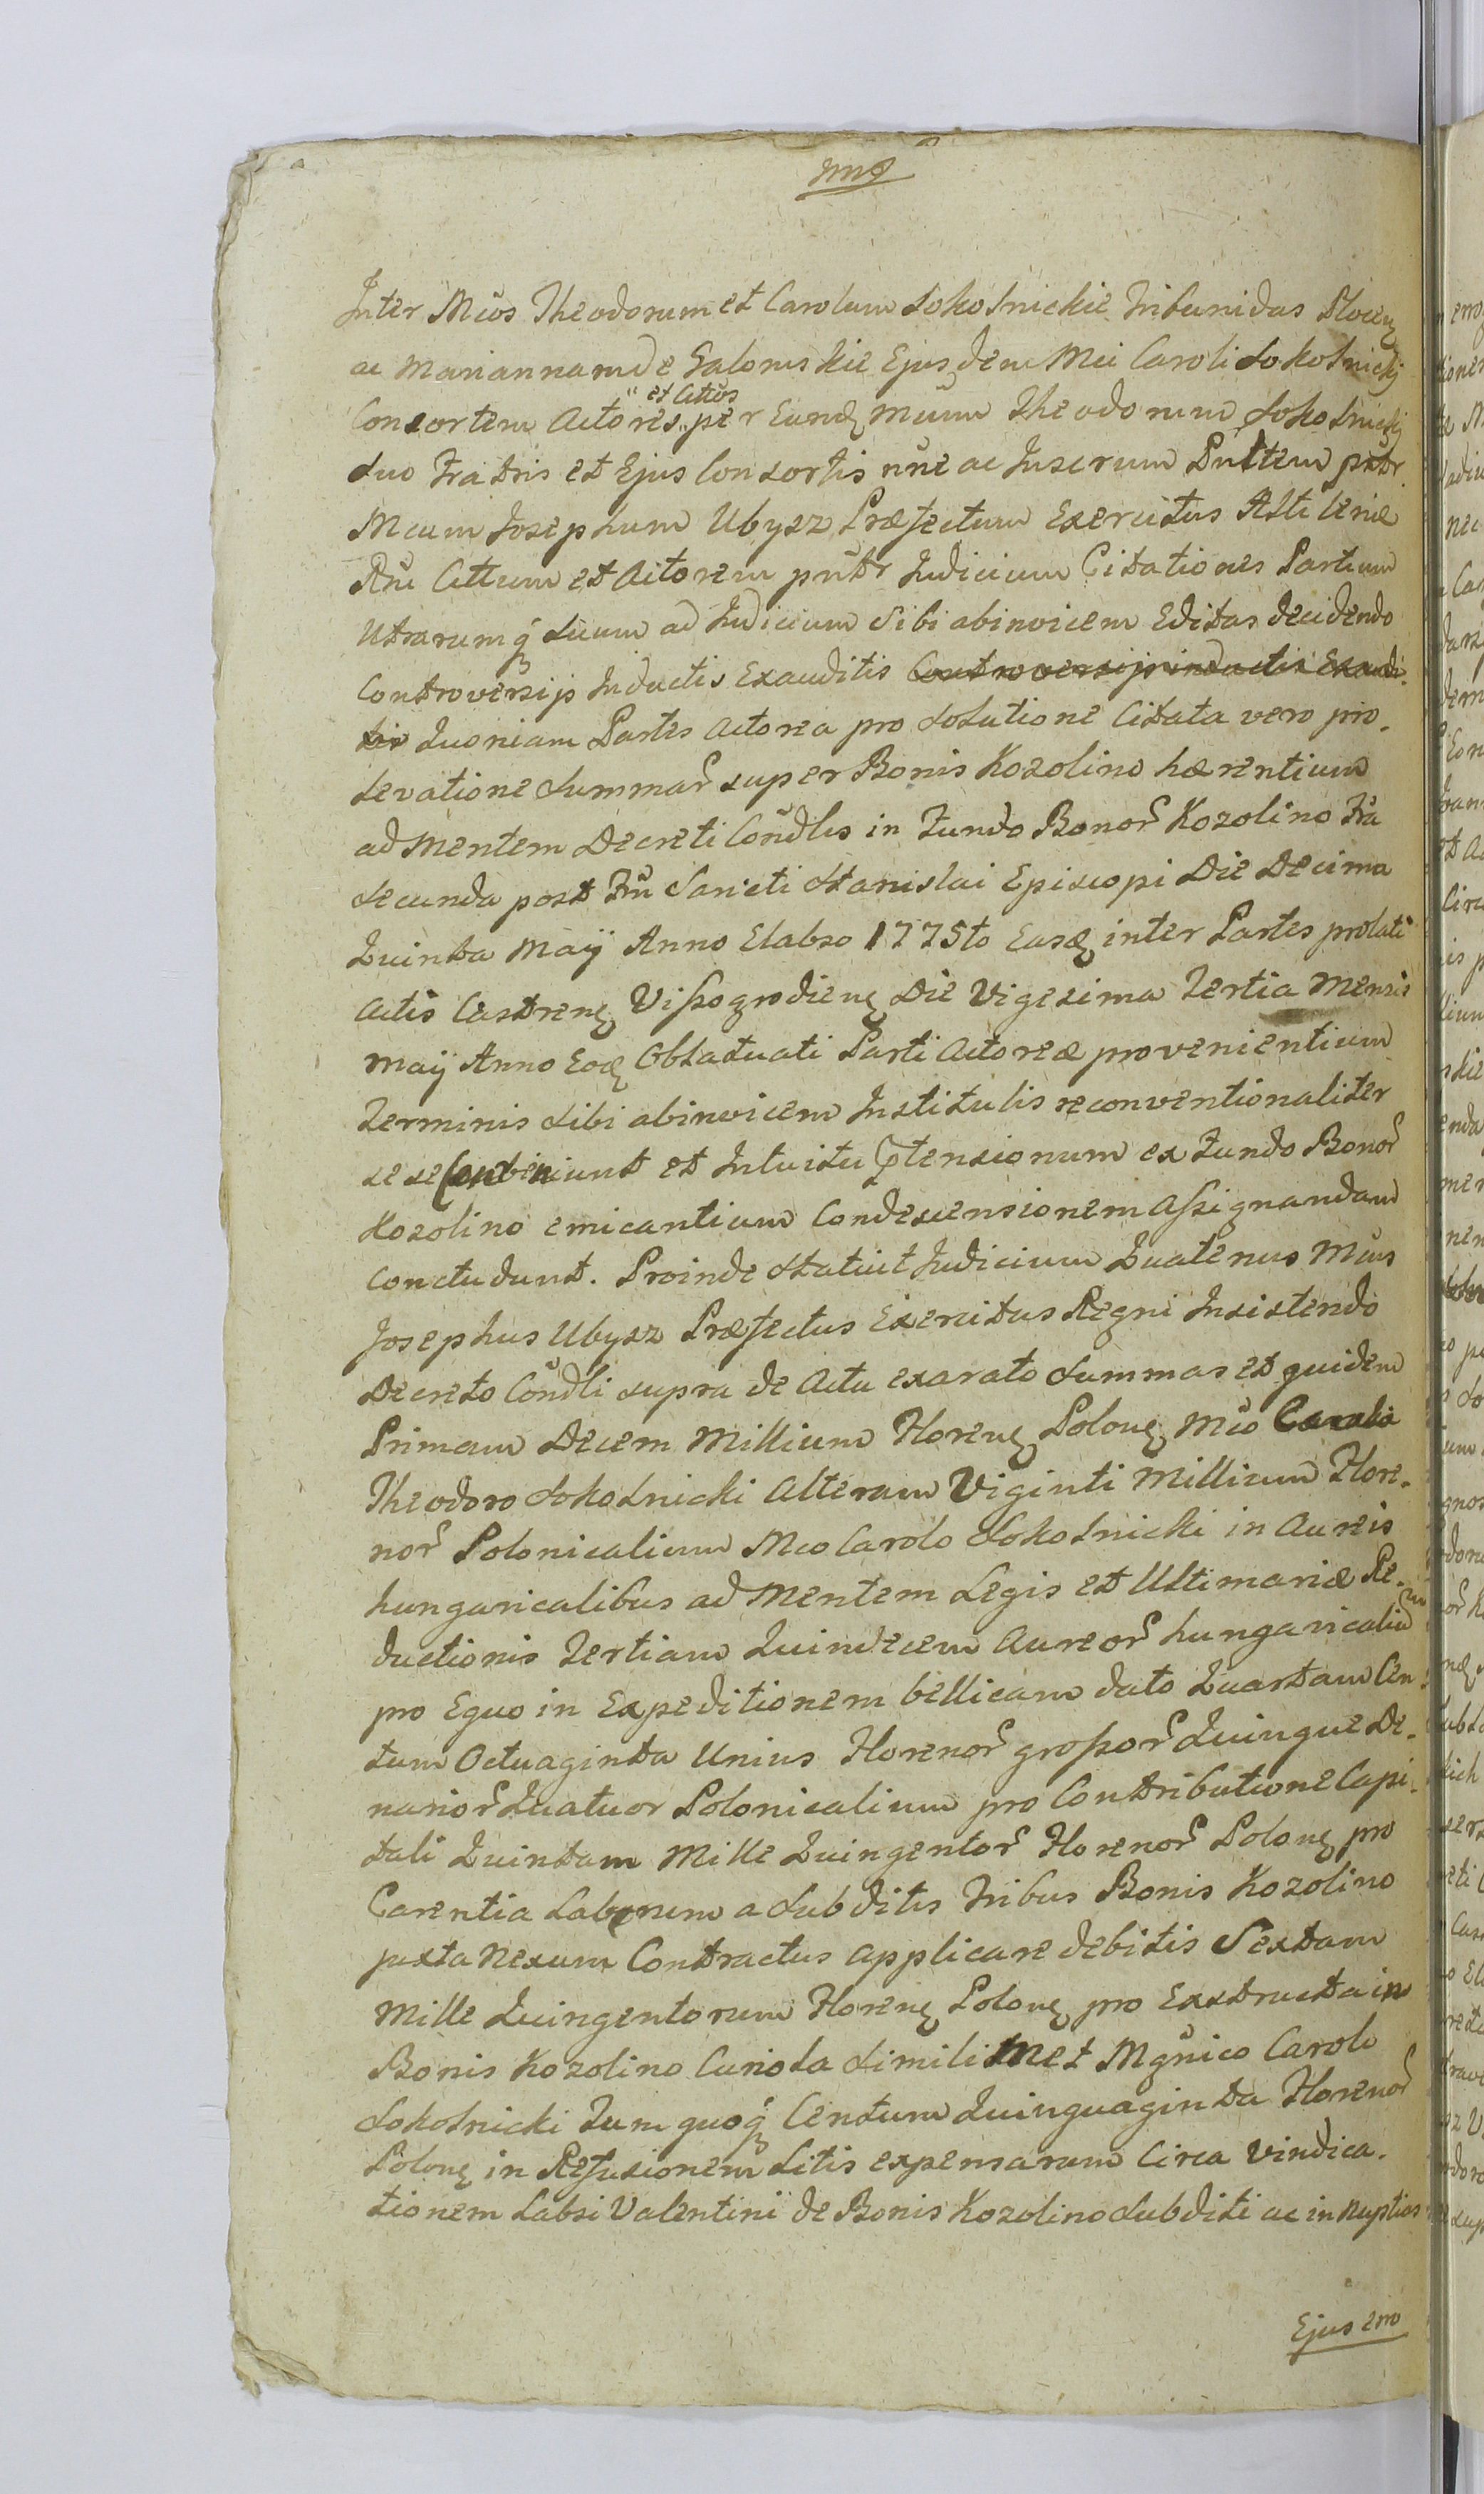 Inter Mcos Theodorum et Carolum Sokolnickie Tribunidas Plocen
ac Mariannam de Galomskie Ejusdem Mci Caroli Sokolnickij
Consortem Actores et Cittos per Eund Mcum Theodorum Sokolnickij
suo Fratris et Ejus Consortis nne ac Juserum
Mcum Josephum Ubysz Præfectum Exercitus
Cittum et Actorem pntr Judicium Citationes Partium
Utrarumq suum ad Judicium sibi abinvicem Editas decidendo
Controversijs Inductis Exauditis Controversijs inductis Exaudi-
tis Quoniam Partes Actorea pro solutione Citata vero pro-
levatione Summar super Bonis Kozolino hærentium
ad Mentem Decreti Condlis in Fundo Bonor Kozolino Fra
Secunda post Fm Sancti Stanislai Episcopi Die Decima
Quinta Maÿ Anno Elabso 1775to Easd inter Partes prolati
Actis Castren Vissogrodien Die Vigesima Tertia Mensis
Maÿ Anno Eod Oblatuati Parti Actoreæ provenientium
Terminis sibi abinvicem Institutis reconventionaliter
sese Conveniunt et Intuitu Ptensionum ex Fundo Bonor
Kozolino emicantium Condescensionem Assignandam
Concludunt. Proinde Statuit Judicium Quatenus Mcus
Josephus Ubysz Præfectus Exercitus Regni Insistendo
Decreto Condli supra de Actu exarato Summas et quidem
Primam Decem Millium Floren Polon Mco Carolo
Theodoro Sokolnicki Alteram Viginti Millium Flore-
nor Polonicalium Mco Carolo Sokolnicki in Aureis
hungaricalibus ad Mentem Legis et Ultimariæ Re-
ductionis Tertiam Quindecem Aureor hungaricaliu
pro Equo in Expeditionem bellicam dato Quartam Cen-
tum Octuaginta Unius Florenor grossor Quinque De-
narior Quatuor Polonicalium pro Contributione Capi-
tali Quintam Mille Quingentor Florenor Polon pro
Carentia Laborum a Subditis Tribus Bonis Kozolino
juxta Nexum Contractus applicare debitis Sextam
Mille Quingentorum Floren Polon pro Exstructa in
Bonis Kozolino Curiola Simili Met Mgnico Carolo
Sokolnicki Tum quoq Centum Quinquaginta Florenor
Polon in Refusionem Litis expensarum Circa Vindica-
tionem Labsi Valentini de Bonis Kozolino Subditi ac in Nuptias
Ejus